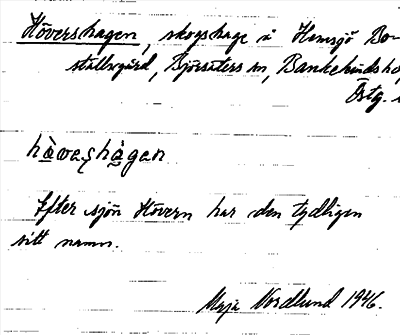 Hövershagen, skogshage i Hemsjö Bo-
ställsgård, Björsäters sn, Bankekinds h
Östg.
hàvaʂhàgan
Efter sjön Hövern har den tydligen
sitt namn.
Maja Nordlund 1946.